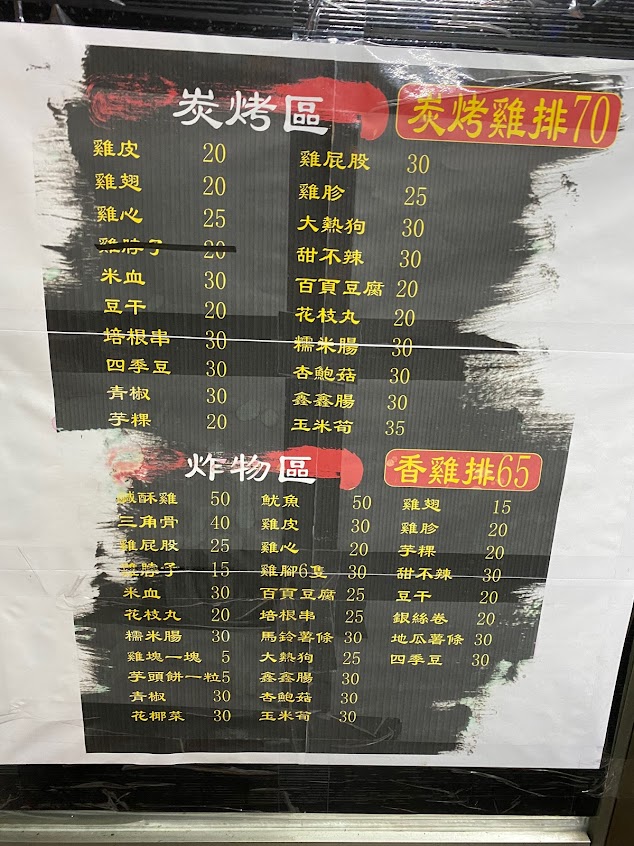 炭烤區
炭烤雞排70
雞皮 20
雞翅 20
雞心 25
雞脖子 20
米血 30
豆干 20
培根串 30
四季豆 30
青椒 30
芋粿 20
雞屁股 30
雞胗 25
大熱狗 30
甜不辣 30
百頁豆腐 20
花枝丸 20
糯米腸 30
杏鮑菇 30
鑫鑫腸 30
玉米筍 35
炸物區
香雞排65
鹹酥雞 50
三角骨 40
雞屁股 25
雞脖子 15
米血 30
花枝丸 20
糯米腸 30
雞塊一塊 5
芋頭餅一粒5
青椒 30
花椰菜 30
魷魚 50
雞皮 30
雞心 20
雞腳6隻 30
百頁豆腐 25
培根串 25
馬鈴薯條 30
大熱狗 25
鑫鑫腸 30
杏鮑菇 30
玉米筍 30
雞翅 15
雞胗 20
芋粿 20
甜不辣 30
豆干 20
銀絲卷 20
地瓜薯條 30
四季豆 30